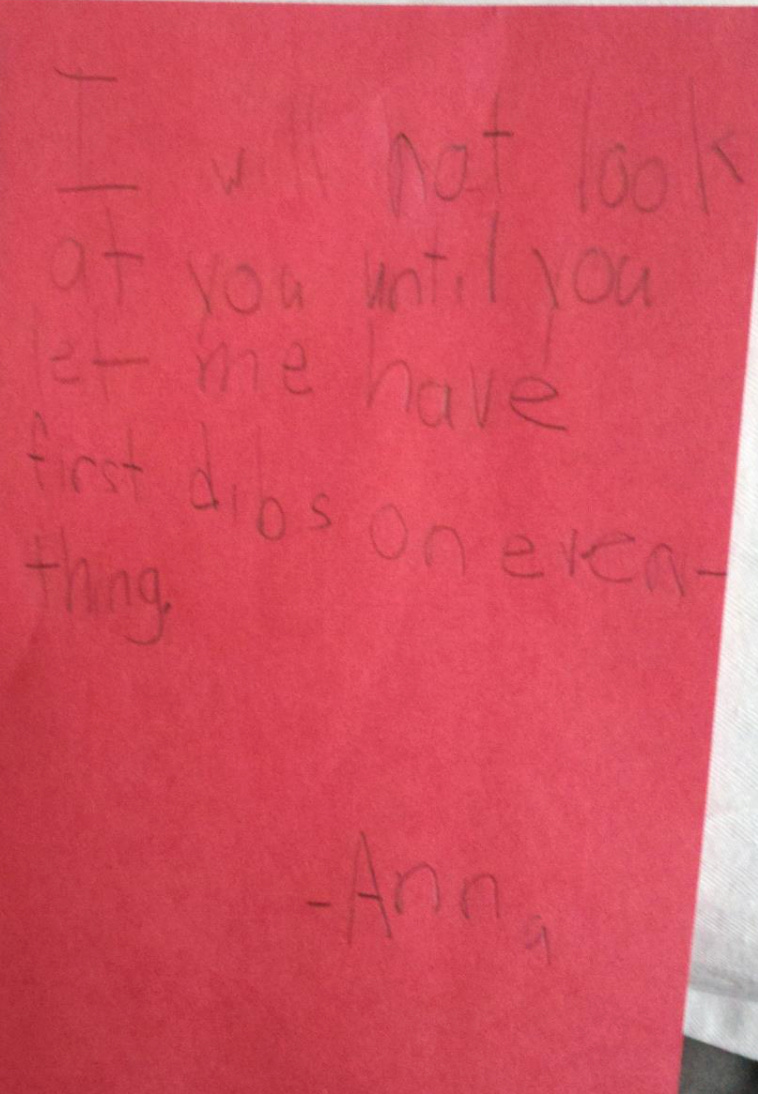 I will not look
at you until you
let me have
first dibs on even-
thing.
-Anna